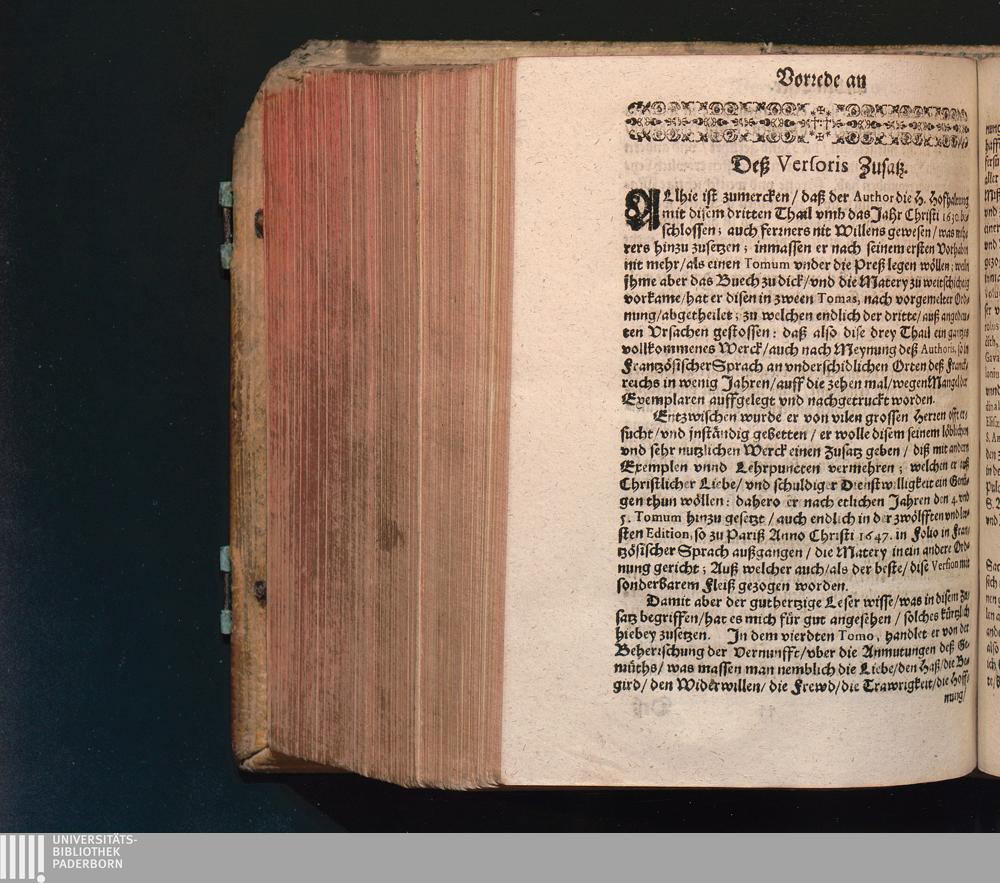 Vorrede an
Deß Versoris Zusatz.
ALlhie ist zumercken / daß der Author die H. Hofhaltung
mit disem dritten Thail vmb das Jahr Christi 1630. be-
schlossen; auch ferrners nit Willens gewesen / was
rers hinzu zusetzen; inmassen er nach seinem ersten Vorhaben
nit mehr / als einen Tomum vnder die Preß legen wöllen; weiln
jhme aber das Buech zu dick / vnd die Matery zu weitschichtig
vorkame / hat er disen in zween Tomas, nach vorgemelter Ord-
nung / abgetheilet; zu welchen endlich der dritte / auß angedeu-
ten Vrsachen gestossen: daß also dise drey Thail ein gantzes
vollkommenes Werck / auch nach Meynung deß Authoris, so in
Frantzösischer Sprach an vnderschidlichen Orten deß Franck-
reichs in wenig Jahren / auff die zehen mal / wegen Mangel der
Exemplaren auffgelegt vnd nachgetruckt worden.
Entzwischen wurde er von vilen grossen Herren offt er-
sucht / vnd jnständig gebetten / er wolle disem seinem löblichen
vnd sehr nutzlichen Werck einen Zusatz geben / diß mit andern
Exemplen vnnd Lehrpuncten vermehren; welchen er auß
Christlicher Liebe / vnd schuldiger Dienstwilligkeit ein Genü-
gen thun wöllen: dahero er nach etlichen Jahren den 4. vnd
5. Tomum hinzu gesetzt / auch endlich in der zwölfften vnd letz-
sten Edition, so zu Pariß Anno Christi 1647. in Folio in Fran-
tzösischer Sprach außgangen / die Matery in ein andere Ord-
nung gericht; Auß welcher auch / als der beste / dise Version mit
sonderbarem Fleiß gezogen worden.
Damit aber der guthertzige Leser wisse / was in disem Zu-
satz begriffen / hat es mich für gut angesehen / solches kürtzlich
hiebey zusetzen. In dem vierdten Tomo, handlet er von der
Beherrschung der Vernunfft / vber die Anmutungen deß Ge-
müths / was massen man nemblich die Liebe / den Haß / die Be-
gird / den Widerwillen / die Frewd / die Trawrigkeit / die Hoff-
nung /
UNIVERSITÄTS-
BIBLIOTHEK
PADERBORN